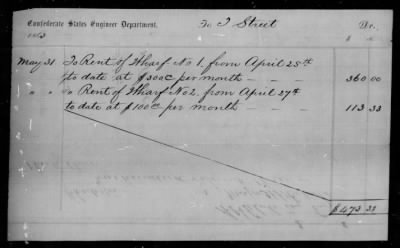 Confederate States Engineer Department,
To T Street
Dr.
1863
$ c
May 31 To Rent of Wharf No 1, from April 25th
to date at $300 00 per month 360.00
" " To Rent of Wharf No 2, from April 27th
to date at $100 00 per month 113 33
$473 33